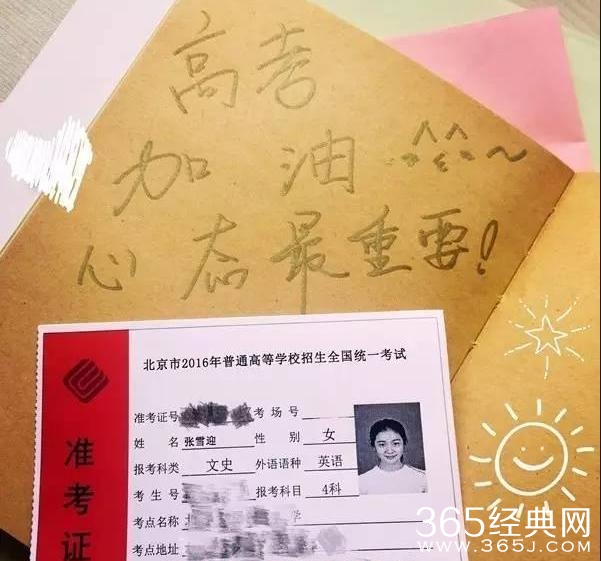 高考
加油
心态最重要!
北京市2016年普通高等学校招生全国统一考试
准考证
准考证号 考场号
姓名 张雪迎 性别 女
报考科类 文史 外语语种 英语
考生号 报考科目 4科
考点名称 学
考点地址
365经典网
WWW.365J.COM